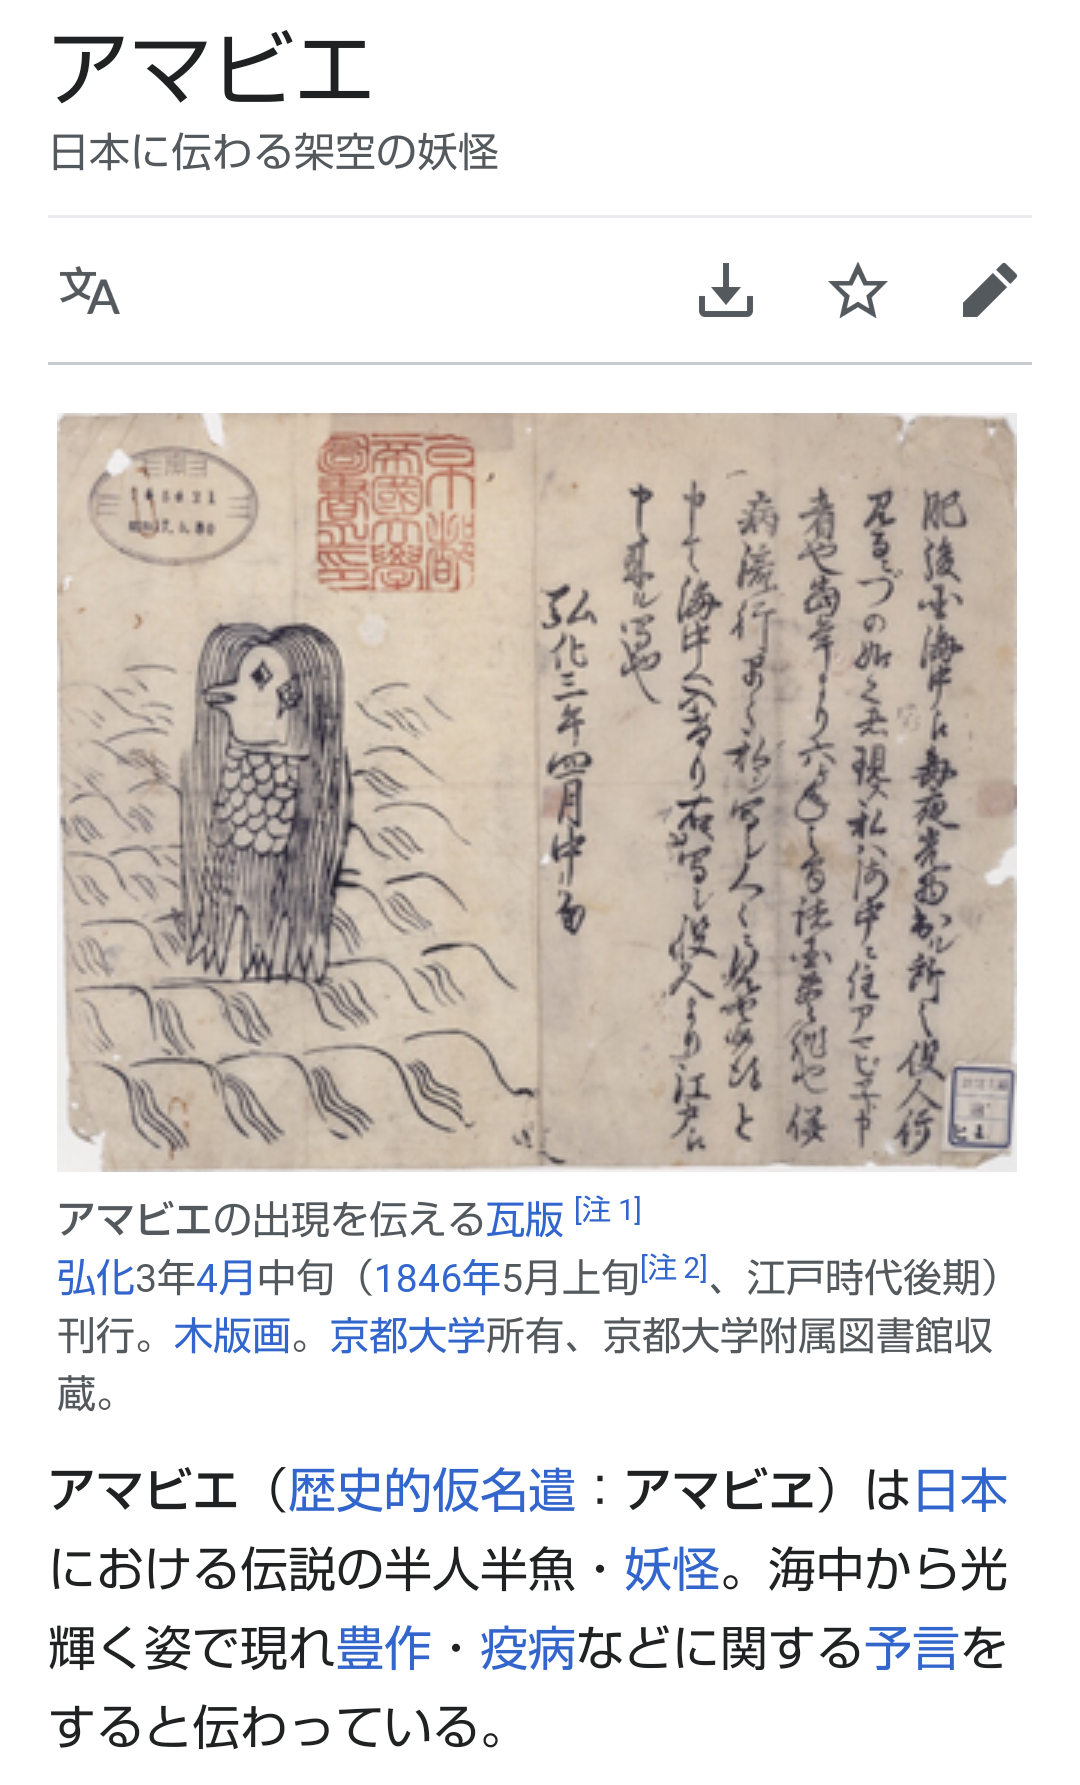 アマビエ
日本に伝わる架空の妖怪
文A
京都
帝國大學
圖書之印
肥後国海中江毎夜光物出ル所之役人行
見るニづの如之者現ス私ハ海中ニ住アマビヱト申
者也当年より六ヶ年之間諸国豊作也併
病流行早々私シ写シ人々ニ見せ候得と
申て海中へ入けり右写シ役人より江戸江
申来ル写也
弘化三年四月中旬
アマビエの出現を伝える瓦版 [注 1]
弘化3年4月中旬（1846年5月上旬[注 2]、江戸時代後期）
刊行。木版画。京都大学所有、京都大学附属図書館収
蔵。
アマビエ（歴史的仮名遣：アマビヱ）は日本
における伝説の半人半魚・妖怪。海中から光
輝く姿で現れ豊作・疫病などに関する予言を
すると伝わっている。